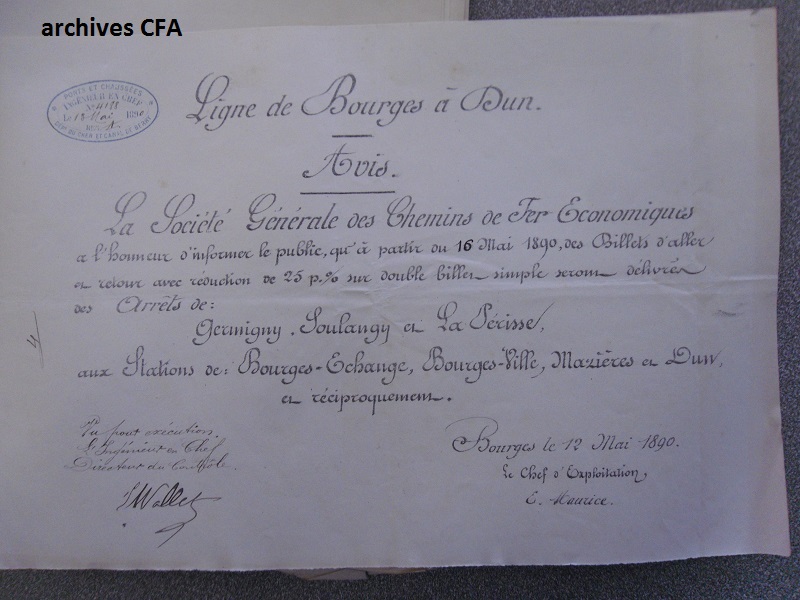 archives CFA
PONTS ET CHAUSSÉES
INGÉNIEUR EN CHEF
Le 13 Mai 1890
Ligne de Bourges à Dun.
Avis.
La Société Générale des Chemins de Fer Economiques
a l'honneur d'informer le public, qu'à partir du 16 Mai 1890, des Billets d'aller
et retour avec réduction de 25 p.% sur double billet simple seront délivrés
des Arrêts de:
Germigny, Soulangy et La Périsse,
aux Stations de: Bourges-Echange, Bourges-Ville, Mazières et Dun,
et réciproquement.
4
Vu pour exécution.
L'Ingénieur en Chef
Directeur du Contrôle.
Bourges le 12 Mai 1890.
Le Chef d'Exploitation,
E. Maurice.